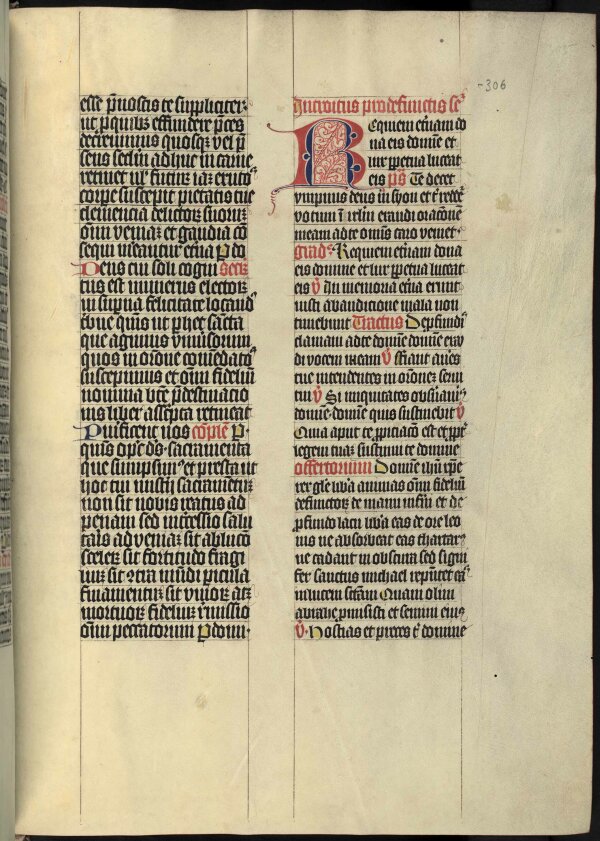 306
esse p̄noscis te suppliciter
ut p̄ quibꝫ effundere p̄ces
decreuimus quosqꝫ vel p̄
sens sc̄lm adhuc in carne
retinet ul̓ futuꝝ iā exutos
corpe suscepit pietatis tue
clemencia delictoꝝ suoꝝ
om̄ veniā et gaudia cō
sequi meant̓ et̓na P do
Deus cui soli cogni Secꝛ̓
tus est numerus electoꝝ
in sup̄na felicitate locand̓
t̓bue qs̄ ut p̄ hec sacͣ
que agimus
quos in or̄one cōmēdatos
suscepimus et om̄ fideliū
nomina bt̄e p̄destinacio
nis liber asc̓pta retineat
Purificent nos cōple̓ P
qs̄ om̄pc̄ dō sacramenta
que sumpsim̓ et presta ut
hoc tui
non sit nobis reatus ad
penam sed int̓cessio salu
taris ad veniā sit ablucō
sceleꝝ sit fortitudo fragi
liuꝫ sit ꝯtra mūdi picula
firmamentū sit viuoꝝ atqꝫ
mortuoꝝ fideliū remissio
om̄ peccatorum P dom̄
Introitus pro defunctis
Requiem et̓nam do
na eis domine et
lux ppetua luceat
eis ps̄ Te decet
ympnus deus in syon et t̓ reddet̓
votum ī irlm̄ exaudi or̄acōne
meam ad te omis caro veniet
grad̓ Requiem et̓nam dona
eis domine et lux ppetua luceat
eis V̓ In memoria et̓na erunt
iusti ab auditione mala non
timebunt Tractus De pfundis
clamaui ad te domine domine exau
di vocem meam V̓ Fiant aures
tue intendentes in or̄onē serui
tui V̓ Si iniquitates obs̓uau̓is
domine domine quis sustinebit V̓
Quia aput te ppiciacō est et ppt̓
legem tuam sustinui te domine
offertorium Domine ihū xp̄e
rex gl̄e lib̓a animas om̄ fideliū
defunctoꝝ de manu inferni et de
pfundo laci lib̓a eas de ore leo
nis ne absorbeat eas tharta
ne cadant in obscura sed signi
fer sanctus michael repn̄tet eas
in lucem sc̄am Quam olim
abrahe pmisisti et semini eius
V̓ Hostias et preces t̓ domine